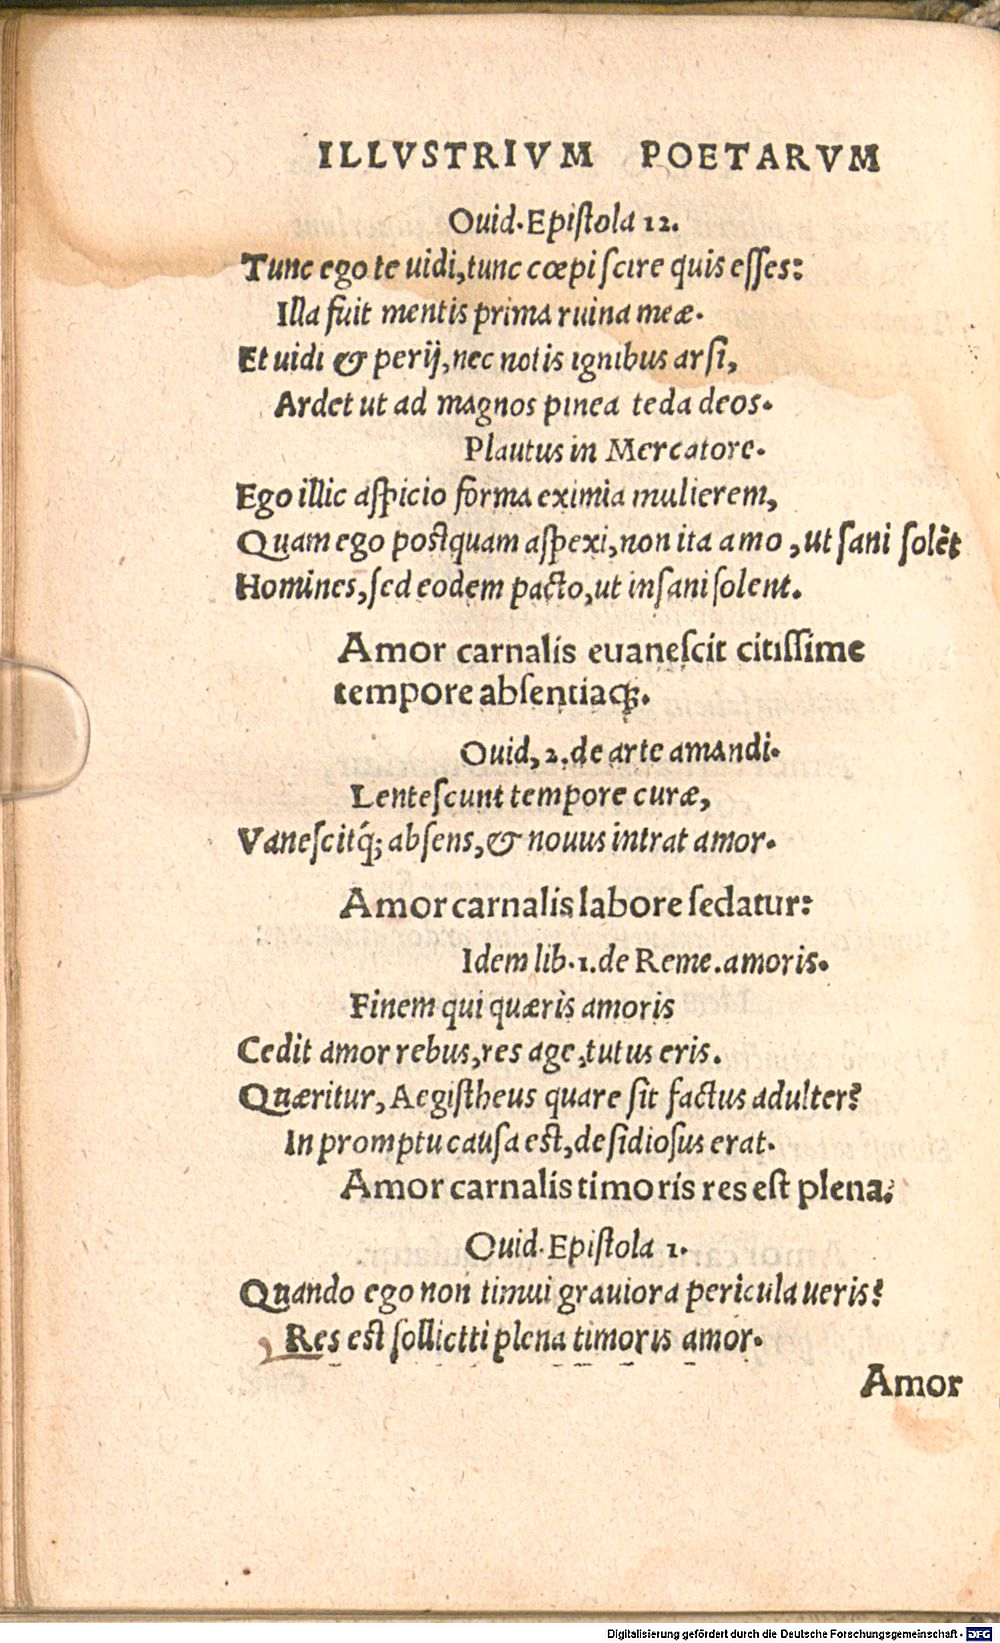 ILLVSTRIVM POETARVM
Ouid. Epiſtola 12.
Tunc ego te uidi, tunc cœpi ſcire quis eſſes:
Illa fuit mentis prima ruina meæ.
Et uidi & perij, nec notis ignibus arſi,
Ardet ut ad magnos pinea teda deos.
Plautus in Mercatore.
Ego illic aſpicio forma eximia mulierem,
Quam ego poſtquam aſpexi, non ita amo, ut ſani ſolẽt
Homines, ſed eodem pacto, ut inſani ſolent.
Amor carnalis euaneſcit citiſſime
tempore abſentiaq́;.
Ouid, 2. de arte amandi.
Lenteſcunt tempore curæ,
Vaneſcitq́; abſens, & nouus intrat amor.
Amor carnalis labore ſedatur:
Idem lib. 1. de Reme. amoris.
Finem qui quæris amoris
Cedit amor rebus, res age, tutus eris.
Quæritur, Aegiſtheus quare ſit factus adulter?
In promptu cauſa eſt, deſidioſus erat.
Amor carnalis timoris res eſt plena.
Ouid. Epiſtola 1.
Quando ego non timui grauiora pericula ueris?
Res eſt ſollictti plena timoris amor.
Amor
Digitalisierung gefördert durch die Deutsche Forschungsgemeinschaft - DFG